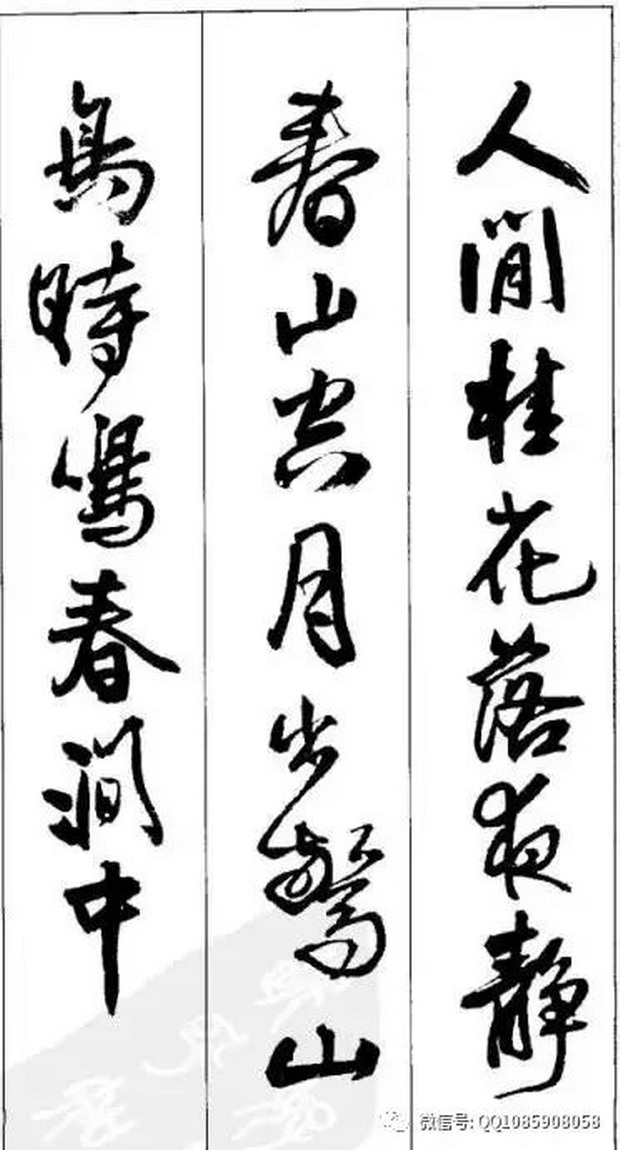 人閒桂花落夜靜
春山空月出驚山
鳥時鳴春澗中
微信号: QQ1085908058